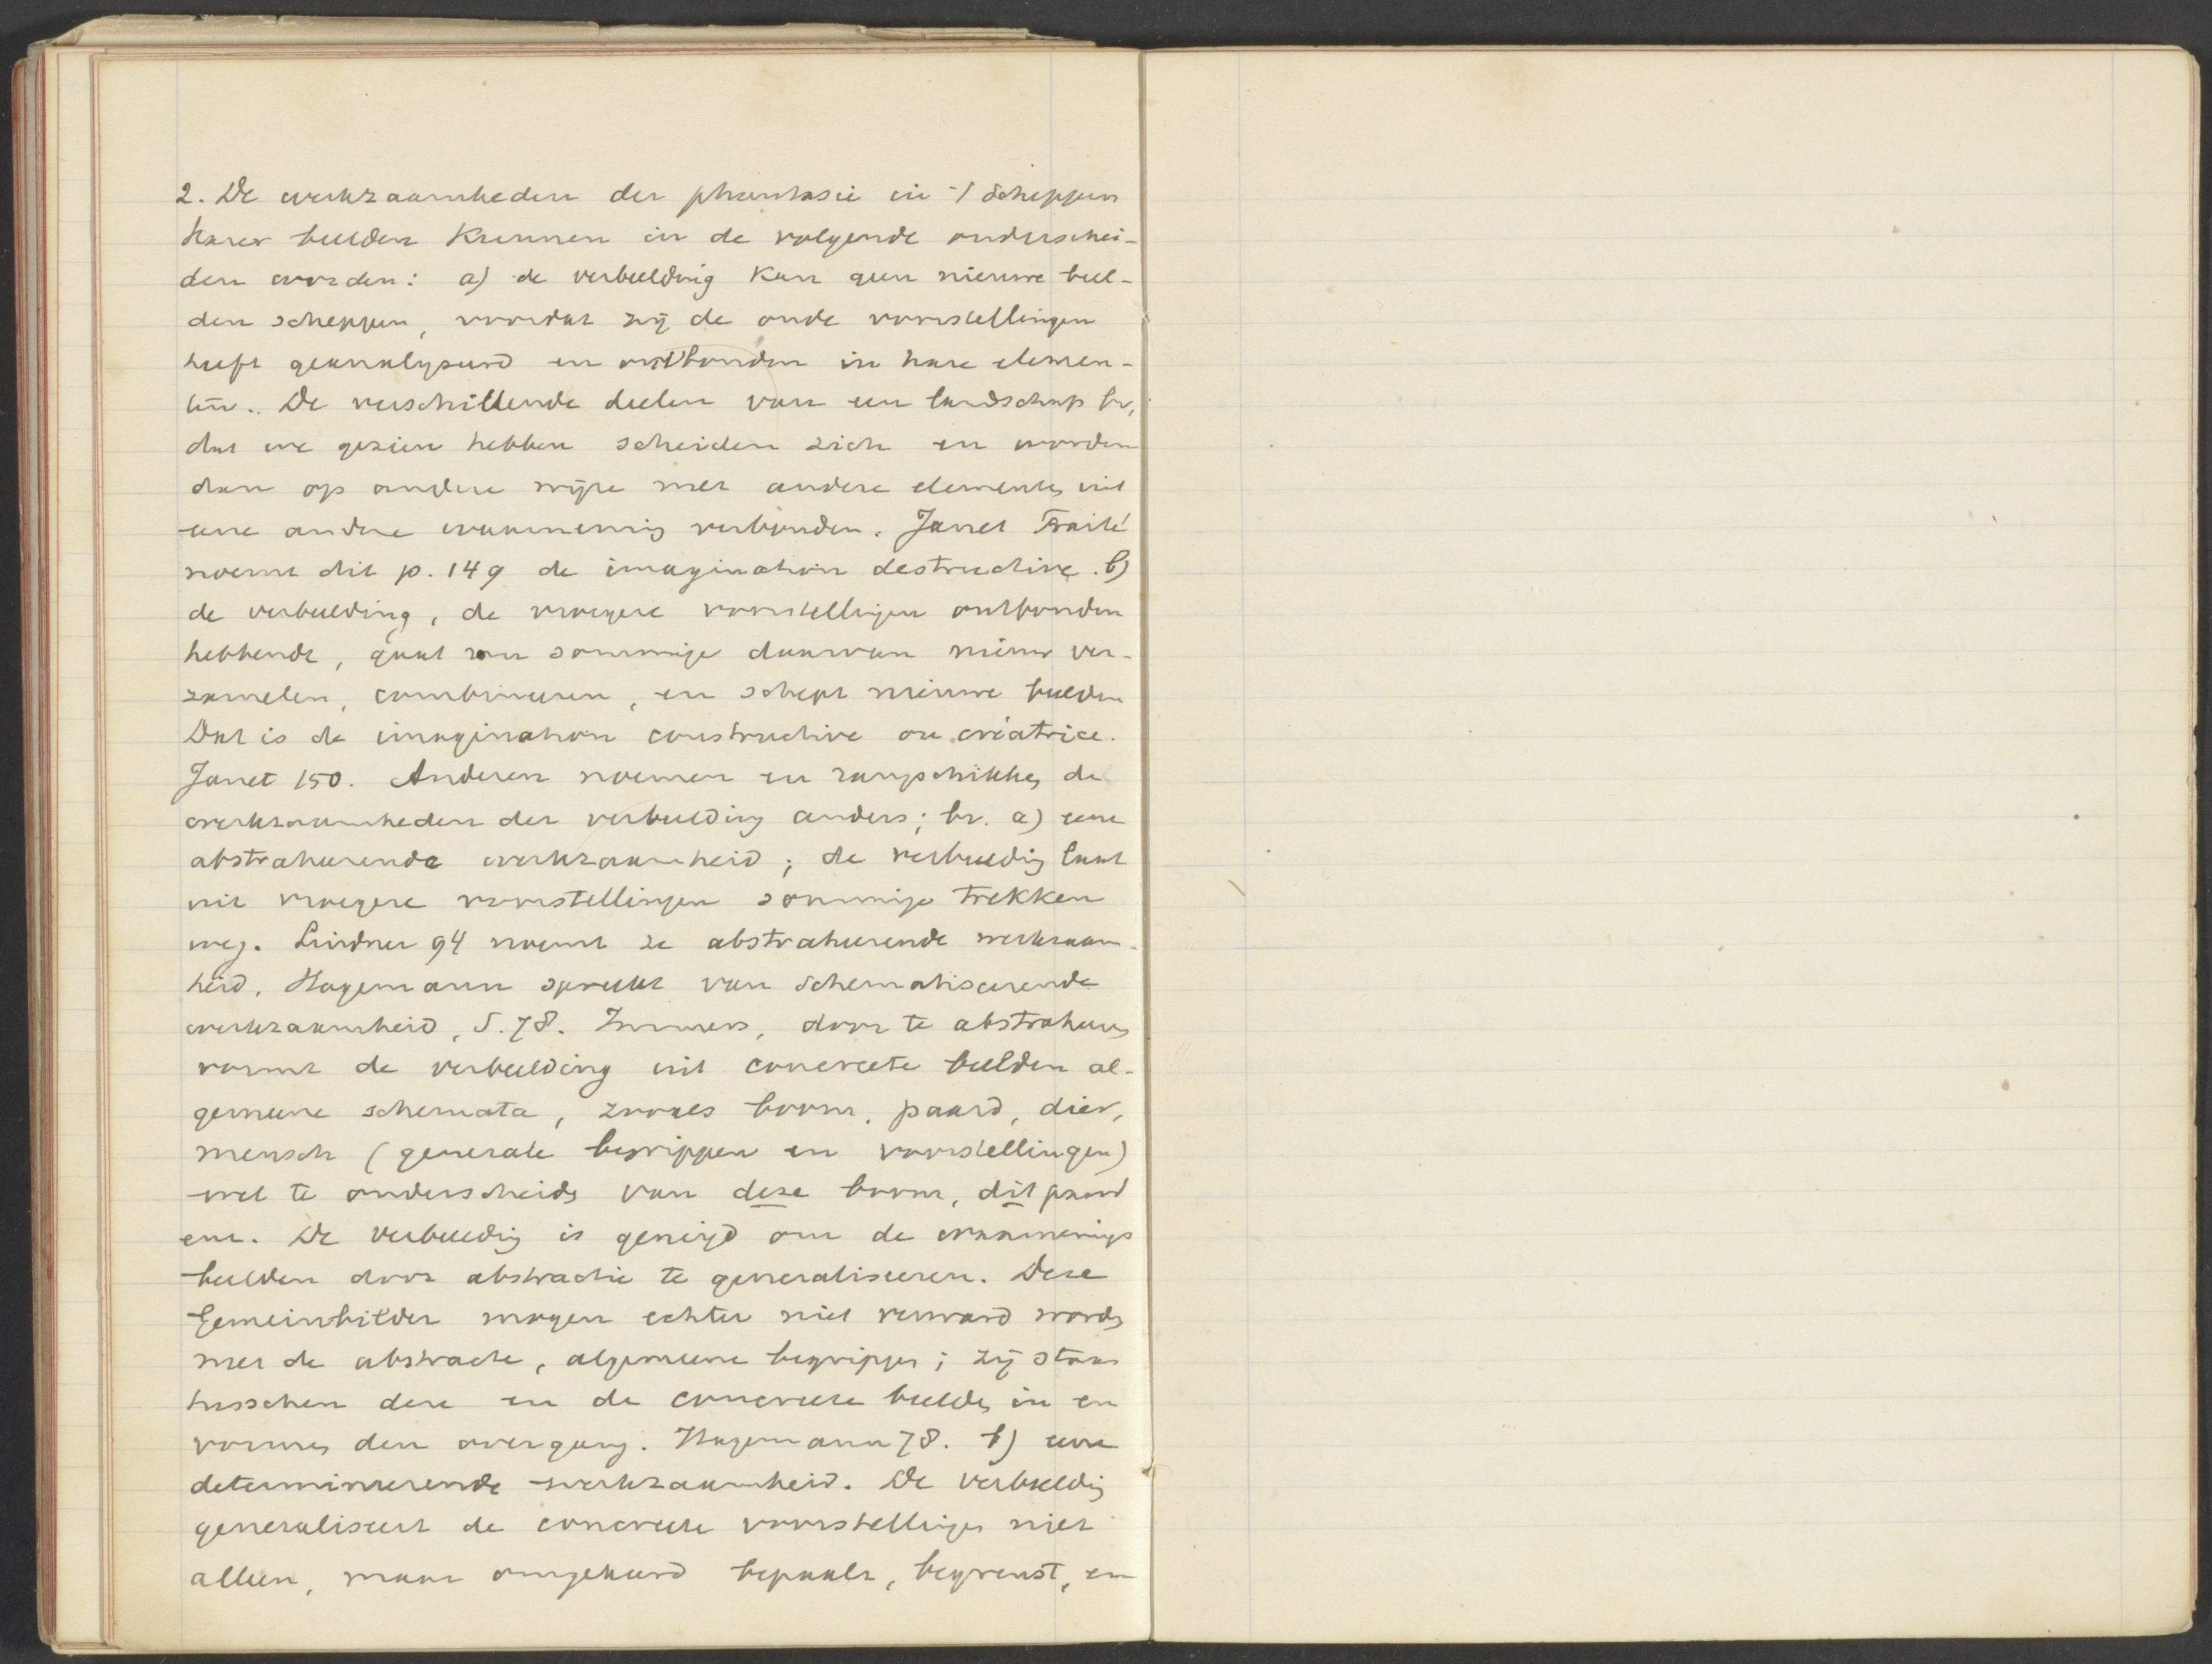 2. De werkzaamheden der phantasie in 't scheppen
harer beelden kunnen in de volgende onderschei-
den worden: a) de verbeelding kan geen nieuwe beel-
den scheppen, voordat zij de oude voorstellingen
heeft geanalyseerd en ontbonden in hare elemen-
ten. De verschillende deelen van een landschap bv,
dat we gezien hebben scheiden zich en worden
dan op andere wijze met andere elementen uit
eene andere waarneming verbonden. Janet Traité
noemt dit p. 149 de imagination destructive. b)
de verbeelding, de vroegere voorstellingen ontbonden
hebbende, gaat sommige daarvan nieuw ver-
zamelen, combineeren, en schept nieuwe beelden
Dat is de imagination constructive ou créatrice.
Janet 150. Anderen noemen en rangschikken de
werkzaamheden der verbeelding anders; bv. a) eene
abstraheerende werkzaamheid; de verbeelding laat
uit vroegere voorstellingen sommige trekken
weg. Lindner 94 noemt ze abstraheerende werkzaam-
heid. Hagemann spreekt van schematiseerende
werkzaamheid, S. 78. Immers, door te abstraheeren
vormt de verbeelding uit concreete beelden al-
gemeene schemata, zooals boom, paard, dier,
mensch (generale begrippen en voorstellingen)
wel te onderscheiden van deze boom, dit paard
enz. De verbeelding is geneigd om de waarnemings
beelden door abstractie te generaliseeren. Deze
Gemeinbilder mogen echter niet verward worden
met de abstracte, algemeene begrippen; zij staan
tusschen deze en de concreete beelden in en
vormen den overgang. Hagemann 78. b) eene
determineerende werkzaamheid. De verbeelding
generaliseert de concreete voorstellingen niet
alleen, maar omgekeerd bepaalt, begrenst, en